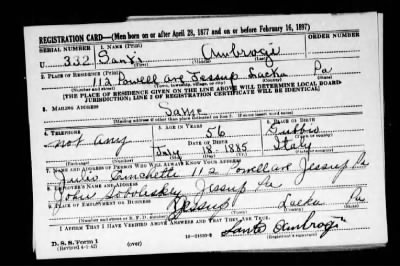 REGISTRATION CARD—(Men born on or after April 28, 1877 and on or before February 16, 1897)
SERIAL NUMBER 1. NAME (Print)
U 332 Santi Ambrogi
(First) (Middle) (Last)
2. PLACE OF RESIDENCE (Print)
112 Powell ave Jessup Lacka Pa
(Number and street) (Town, township, village, or city) (County) (State)
[THE PLACE OF RESIDENCE GIVEN ON THE LINE ABOVE WILL DETERMINE LOCAL BOARD
JURISDICTION; LINE 2 OF REGISTRATION CERTIFICATE WILL BE IDENTICAL]
3. MAILING ADDRESS
Same
[Mailing address if other than place indicated on line 2. If same insert word same]
4. TELEPHONE 5. AGE IN YEARS 6. PLACE OF BIRTH
56 Gubbio
not any DATE OF BIRTH (Town or county)
July 18 1885 Italy
(Exchange) (Number) (Mo.) (Day) (Yr.) (State or country)
7. NAME AND ADDRESS OF PERSON WHO WILL ALWAYS KNOW YOUR ADDRESS
112 Powell ave Jessup Pa
8. EMPLOYER'S NAME AND ADDRESS
John Jessup Pa
9. PLACE OF EMPLOYMENT OR BUSINESS
Jessup Lacka Pa
(Number and street or R. F. D. number) (Town) (County) (State)
I AFFIRM THAT I HAVE VERIFIED ABOVE ANSWERS AND THAT THEY ARE TRUE.
D. S. S. Form 1
(Revised 4-1-42) (over) Santo Ambrogi